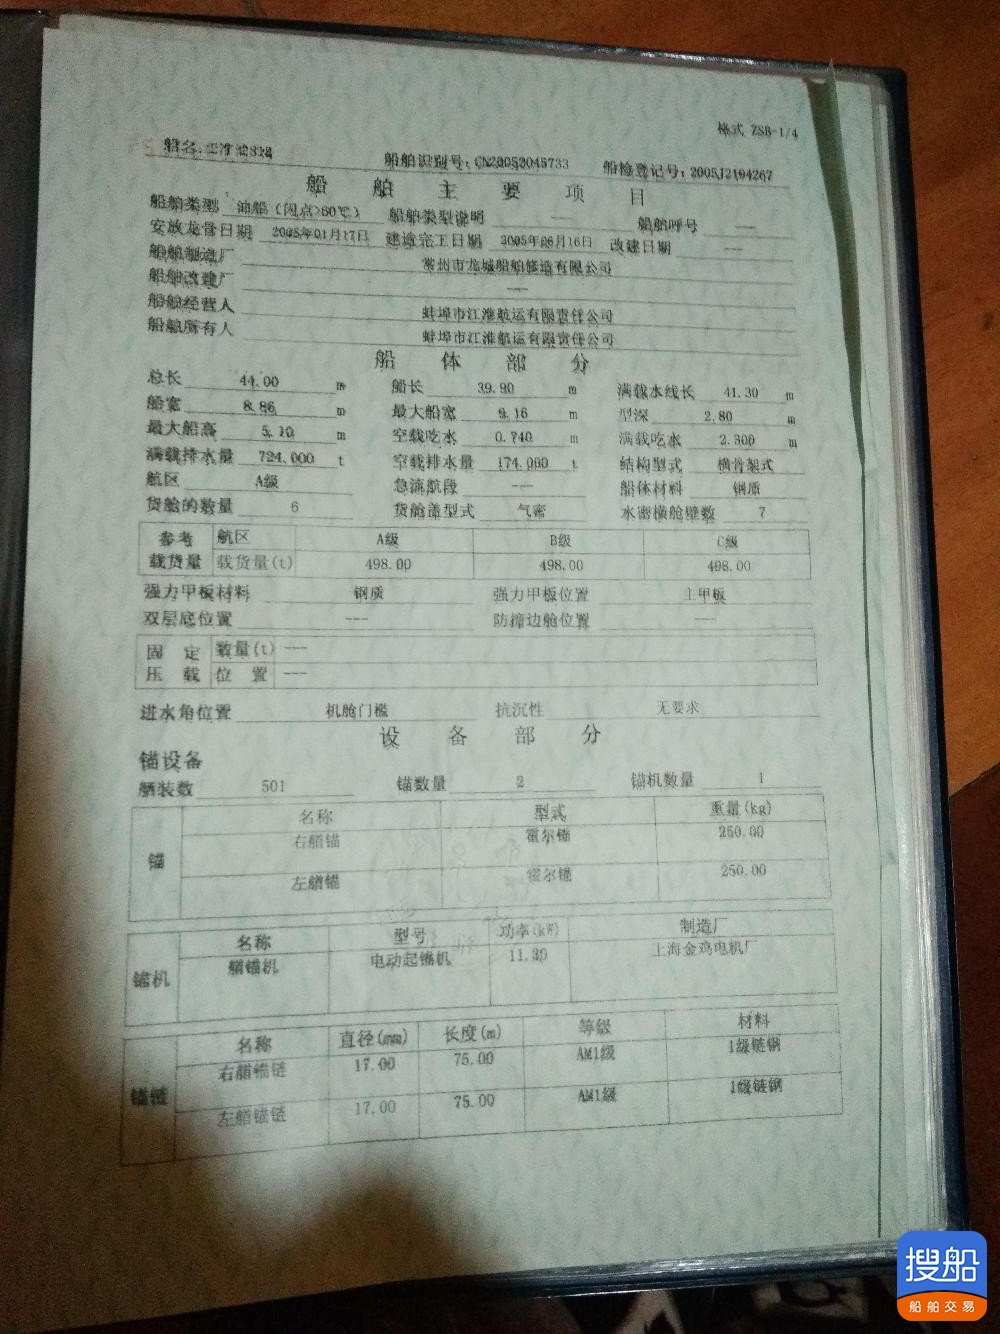 格式 ZSB-1/4
船名: 江淮油818 船舶识别号: CN20053045733 船检登记号: 2005J2104267
船舶主要项目
船舶类型 油船(闪点>60℃) 船舶类型说明 --- 船舶呼号 ---
安放龙骨日期 2005年01月17日 建造完工日期 2005年06月16日 改建日期 ---
船舶制造厂 常州市龙城船舶修造有限公司
船舶改建厂 ---
船舶经营人 蚌埠市江淮航运有限责任公司
船舶所有人 蚌埠市江淮航运有限责任公司
船体部分
总长 44.00 m 船长 39.90 m 满载水线长 41.30 m
船宽 8.86 m 最大船宽 9.16 m 型深 2.80 m
最大船高 5.10 m 空载吃水 0.740 m 满载吃水 2.300 m
满载排水量 724.000 t 空载排水量 174.000 t 结构型式 横骨架式
航区 A级 急流航段 --- 船体材料 钢质
货舱的数量 6 货舱盖型式 气密 水密横舱壁数 7
参考载货量 航区 A级 B级 C级
载货量(t) 498.00 498.00 498.00
强力甲板材料 钢质 强力甲板位置 主甲板
双层底位置 --- 防撞边舱位置 ---
固定压载 数量(t) ---
位置 ---
进水角位置 机舱门槛 抗沉性 无要求
设备部分
锚设备
舾装数 501 锚数量 2 锚机数量 1
锚 名称 型式 重量(kg)
右艏锚 霍尔锚 250.00
左艏锚 霍尔锚 250.00
锚机 名称 型号 功率(kW) 制造厂
艏锚机 电动起锚机 11.30 上海金鸡电机厂
锚链 名称 直径(mm) 长度(m) 等级 材料
右艏锚链 17.00 75.00 AM1级 1级链钢
左艏锚链 17.00 75.00 AM1级 1级链钢
搜船
船舶交易